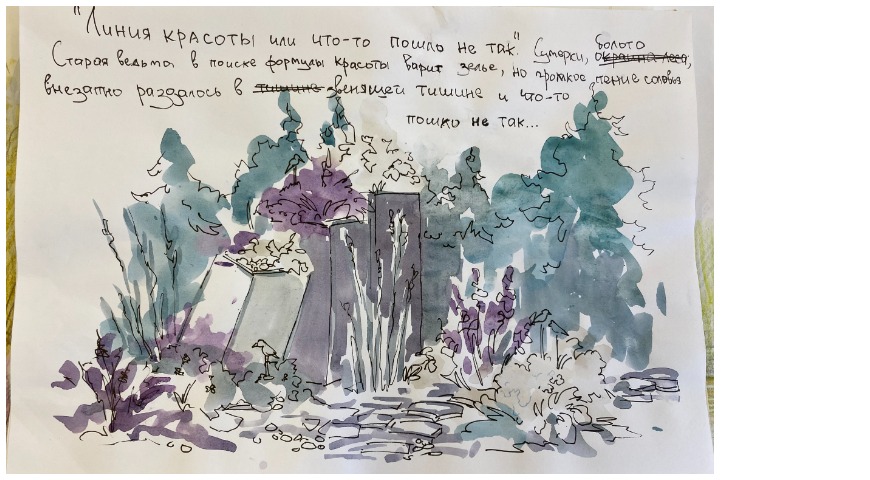 "Линия красоты или что-то пошло не так". Сумерки, болото
окраина леса,
Старая ведьма в поиске формулы красоты варит зелье, но громкое пение соловья
внезапно раздалось в тишине звенящей тишине и что-то
пошло не так...